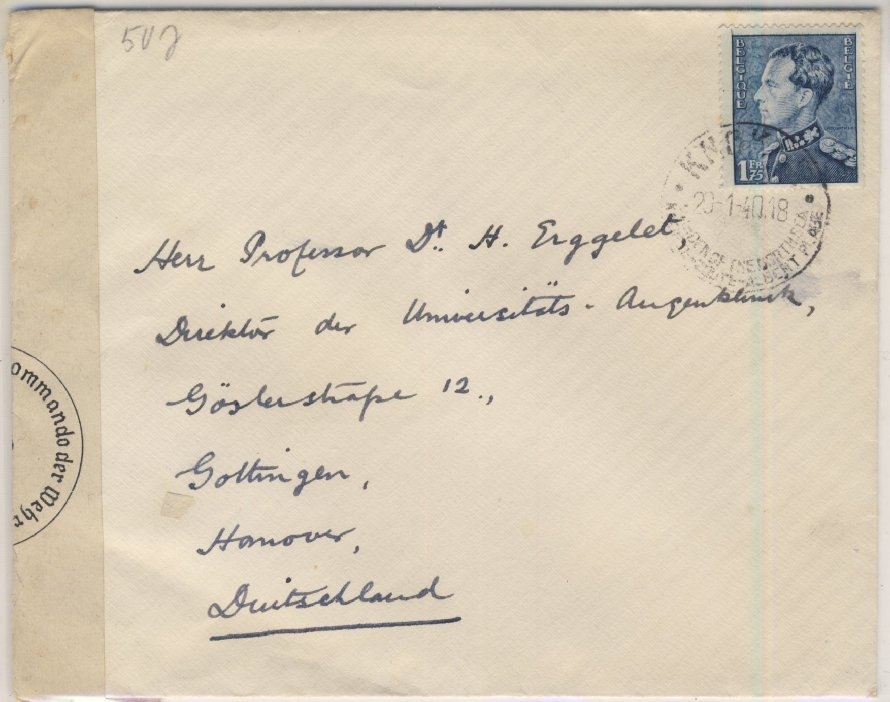 50 J
BELGIQUE
BELGIË
1 FR 75
KNOK
20-1-40.18
ALBERT PLAGE
Herr Professor Dr. H. Erggelet,
Direktor der Universitäts-Augenklinik,
Göslerstraße 12.,
Gottingen,
Hannover,
Duitschland
ommando der Wehr